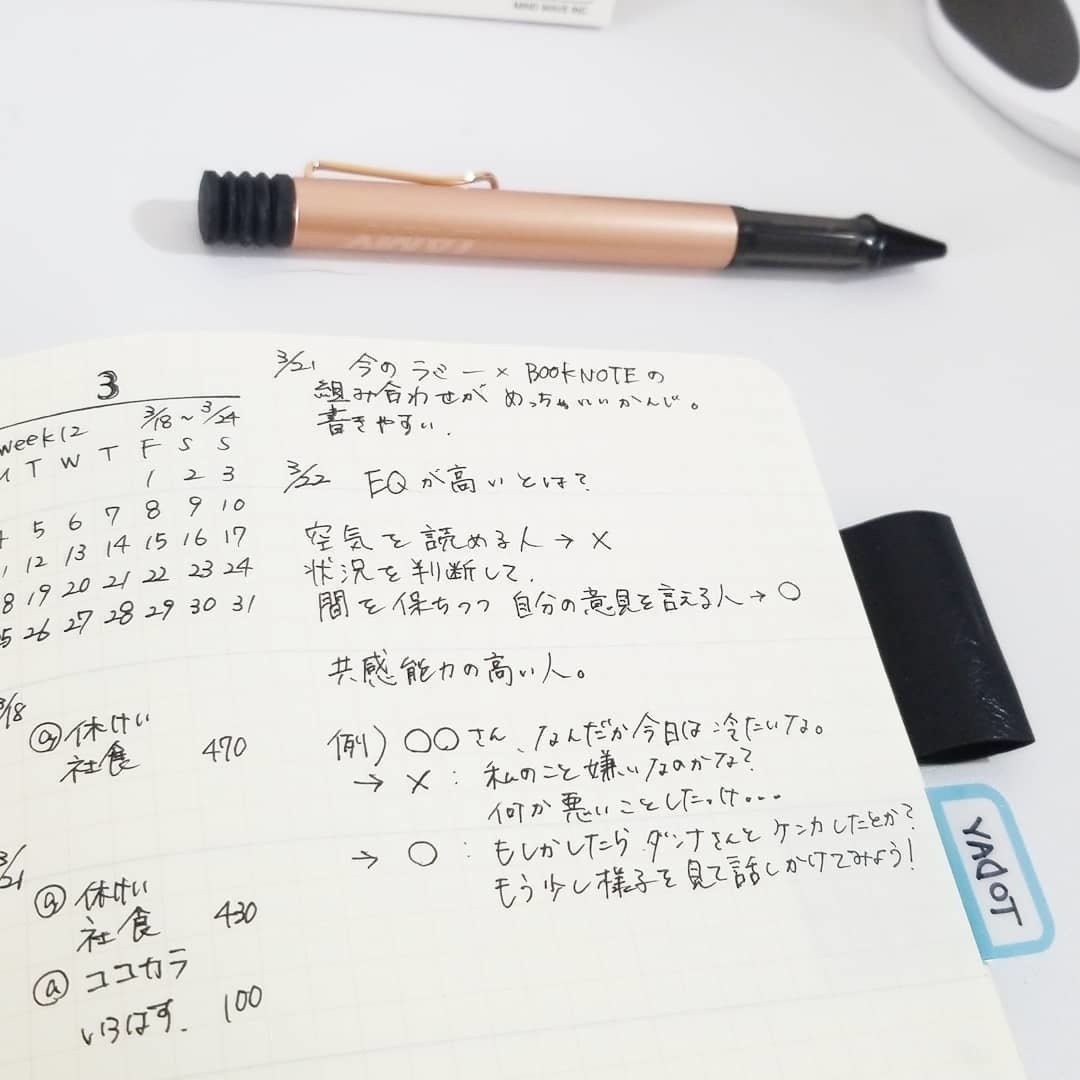 MIND WAVE INC
LAMY
3
week12 3/18~3/24
T W T F S S
1 2 3
5 6 7 8 9 10
12 13 14 15 16 17
18 19 20 21 22 23 24
25 26 27 28 29 30 31
3/18
@休けい
社食 470
3/21
@休けい
社食 430
@ココカラ
いろはす. 100
3/21 今のラミー×BOOKNOTEの
組み合わせが めっちゃいいかんじ。
書きやすい.
3/22 EQが高いとは?
空気を読める人→×
状況を判断して、
間を保ちつつ 自分の意見を言える人→○
共感能力の高い人。
例)○○さん、なんだか今日は冷たいな。
→ × : 私のこと嫌いなのかな?
何か悪いことしたっけ...
→ ○ : もしかしたら ダンナさんと ケンカしたとか?
もう少し様子を見て話しかけてみよう!
TODAY